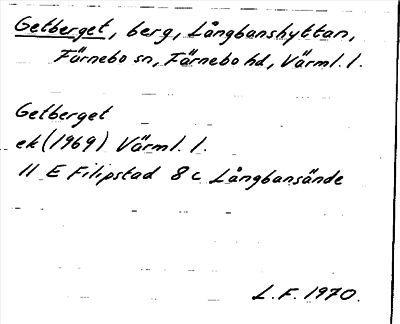 Getberget, berg, Långbanshyttan,
Färnebo sn, Färnebo hd, Värml. l.
Getberget
ek (1969) Värml. l.
11 E Filipstad 8 c Långbansände
L.F. 1970.